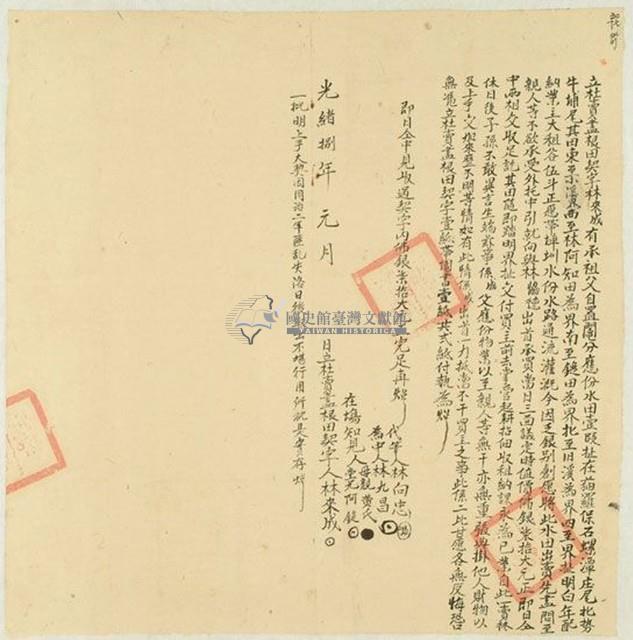 立杜賣盡根田契字林來成有承祖父自置鬮分應份水田壹段址在猫羅保石螺潭庄尾北勢
牛埔尾其田東至小溪為界西至林阿知田為界南至鎚田為界北至旧溪為界四至界址明白年配
納業主大租谷伍斗正愿帶埤圳水份水路通流灌溉今因乏銀別創愿將此水田出賣先盡問至
親人等不欲承受外托中引就向與林 出首承買當日三面議定時值價佛銀柒拾大元正即日仝
中兩相交收足訖其田隨即踏明界址交付買主前去掌管起耕招佃收租納課永為己業自此一賣終
休日後子孫不敢異言生端滋事係成父應份物業以至親人等無干亦無重張典掛他人財物以
及上手交加來歷不明等情如有此情係成出首一力抵當不干買主之事此係二比甘愿各無反悔恐口
無憑立杜賣盡根田契字壹紙帶鬮書壹紙共弍紙付執為炤
即日仝中見收過契字內佛銀柒拾大元完足再炤
代筆人林向忠
為中人林九昌
母親黃氏
在場知見人堂兄阿鎚
光緒捌年元月 日立杜賣盡根田契字人林來成
一批明上手大契因同治二年匪亂失落日後取出不堪行用所批是實再炤
國史館臺灣文獻館
TAIWAN HISTORICA